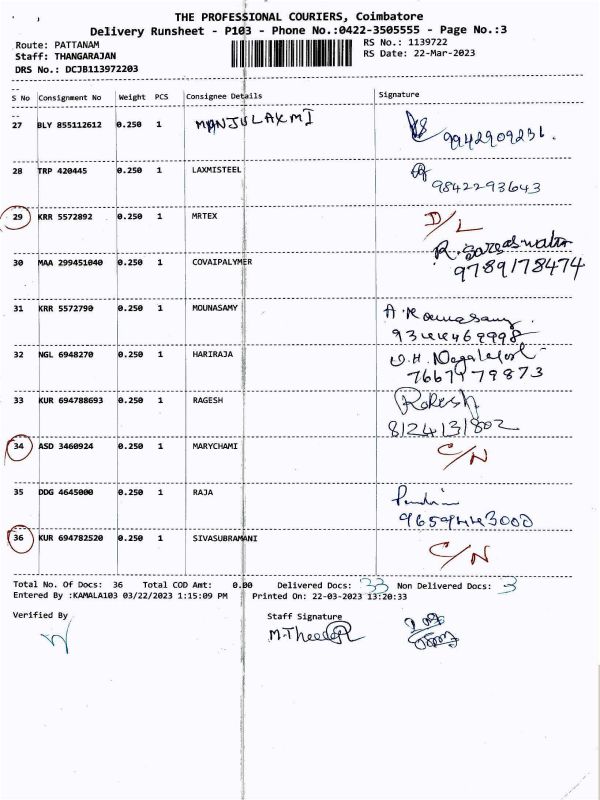 THE PROFESSIONAL COURIERS, Coimbatore
Delivery Runsheet - P103 - Phone No.:0422-3505555 - Page No.:3
Route: PATTANAM RS No.: 1139722
Staff: THANGARAJAN RS Date: 22-Mar-2023
DRS No.: DCJB113972203
S No Consignment No Weight PCS Consignee Details Signature
27 BLY 855112612 0.250 1 MANJULAXMI
9942909231.
28 TRP 420445 0.250 1 LAXMISTEEL
9842293643
29 KRR 5572892 0.250 1 MRTEX D/L
30 MAA 299451040 0.250 1 COVAIPALYMER
9789178474
31 KRR 5572790 0.250 1 MOUNASAMY A. Mounasamy
32 NGL 6948270 0.250 1 HARIRAJA
7667179873
33 KUR 694788693 0.250 1 RAGESH Rakesh
8124131802
34 ASD 3460924 0.250 1 MARYCHAMI C/N
35 DDG 4645000 0.250 1 RAJA
36 KUR 694782520 0.250 1 SIVASUBRAMANI C/N
Total No. Of Docs: 36 Total COD Amt: 0.00 Delivered Docs: 33 Non Delivered Docs: 3
Entered By :KAMALA103 03/22/2023 1:15:09 PM Printed On: 22-03-2023 13:20:33
Verified By Staff Signature